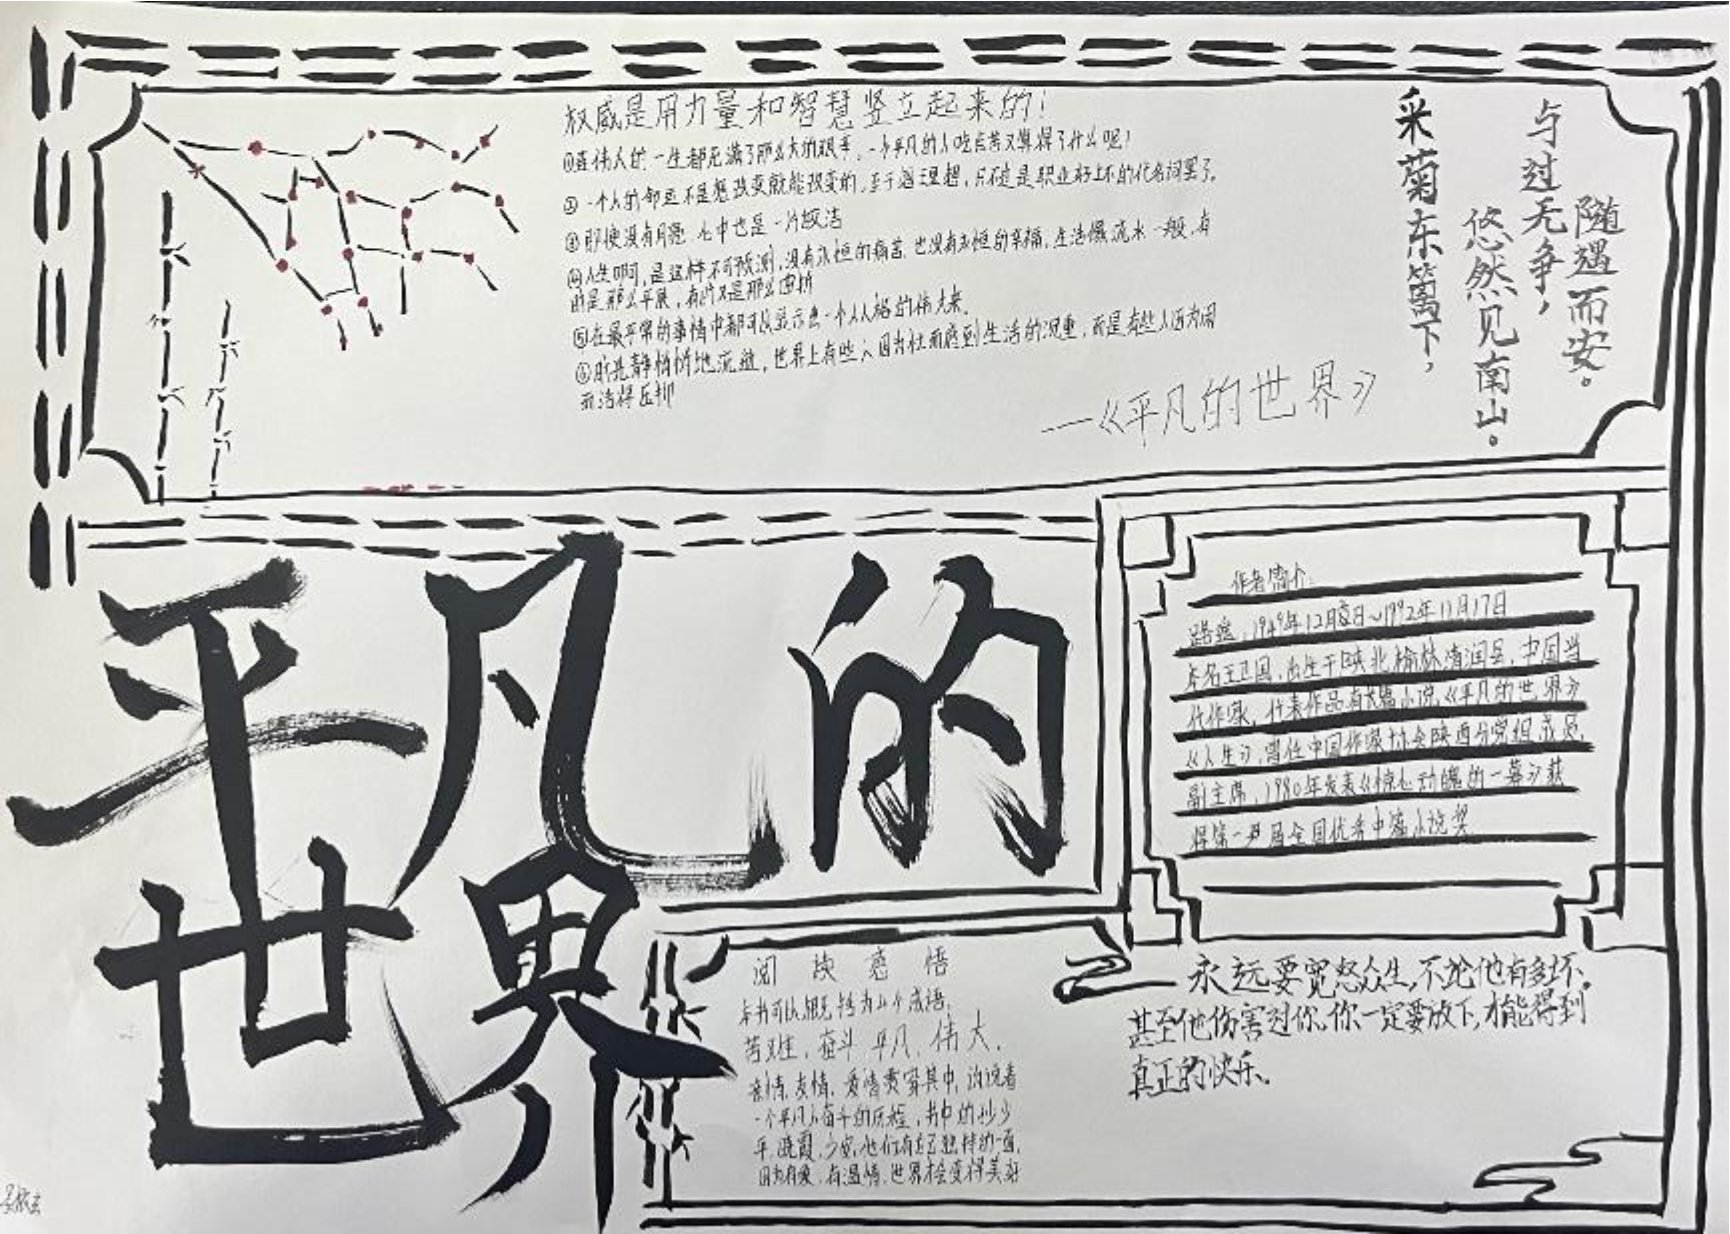 权威是用力量和智慧竖立起来的!
①连伟人的一生都充满了那么大的艰辛,一个平凡的人吃点苦又算得了什么呢!
② 一个人的命运不是想改变就能改变的,至于理想,只不过是职业好上不的代名词罢了。
③ 即使没有月亮 心中也是一片皎洁
④人生啊,是这样不可预测,没有永恒的痛苦,也没有永恒的幸福,生活像流水一般,有
时是那么平展,有时又是那么曲折
⑤在最平常的事情中都可以显示出一个人人格的伟大来。
⑥时光静悄悄地流逝,世界上有些人因为忙而感到生活的沉重,而是有些人因为闲
而活得压抑
—《平凡的世界》
与过无争,
随遇而安。
采菊东篱下,
悠然见南山。
平凡的
世界
作者简介:
路遥,1949年12月 日~1992年11月17日
本名王卫国,出生于陕北榆林清涧县,中国当
代作家,代表作品有长篇小说《平凡的世界》
《人生》,曾任中国作家协会陕西分党组成员
副主席,1980年发表《惊心动魄的一幕》获
得第一 届全国优秀中篇小说奖
阅读感悟
本书可以概括为 个成语,
苦难,奋斗 平凡,伟大,
亲情,友情,爱情贯穿其中,诉说着
一个平凡人奋斗的历程,书中的孙少
平,晓霞,少安,他们有自己独特的一面,
因为有爱,有温情,世界才会变得美好
永远要宽恕众生,不论他有多坏,
甚至他伤害过你,你一定要放下,才能得到
真正的快乐。